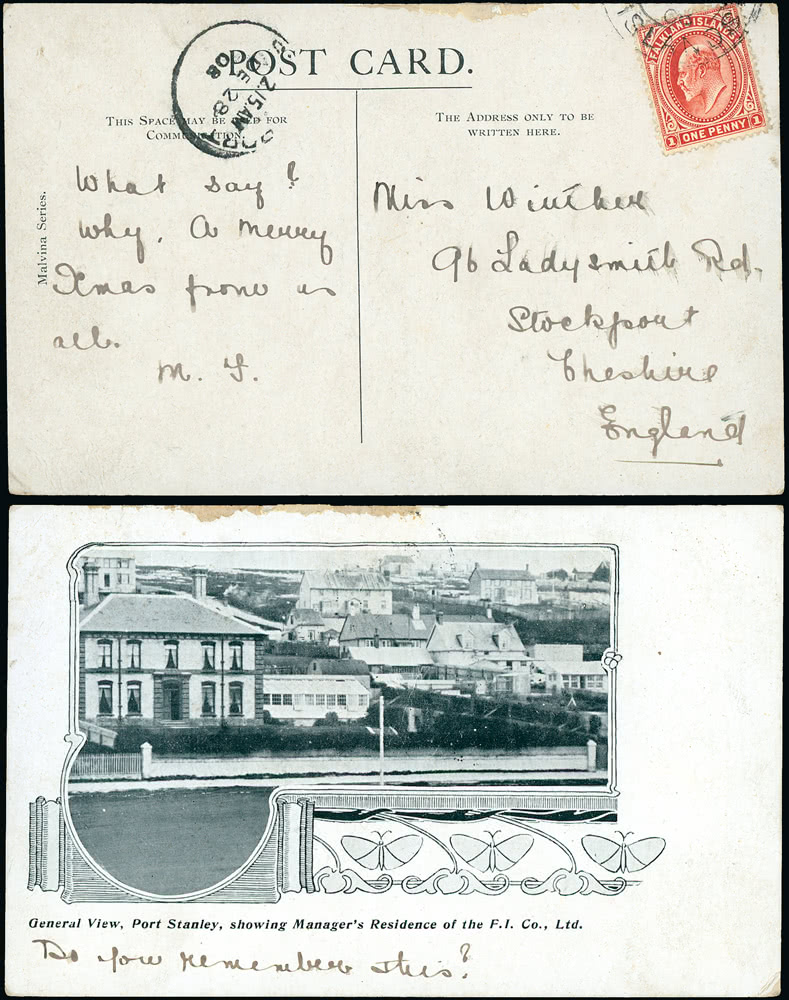 POST CARD.
THIS SPACE MAY BE USED FOR
COMMUNICATION.
THE ADDRESS ONLY TO BE
WRITTEN HERE.
2.15 AM
DE 28
08
FALKLAND ISLANDS
1 ONE PENNY 1
Malvina Series.
What say?
Why, A merry
Xmas from us
all.
M. F.
Miss Winther
96 Ladysmith Rd.
Stockport
Cheshire
England
General View, Port Stanley, showing Manager's Residence of the F.I. Co., Ltd.
Do you remember this?